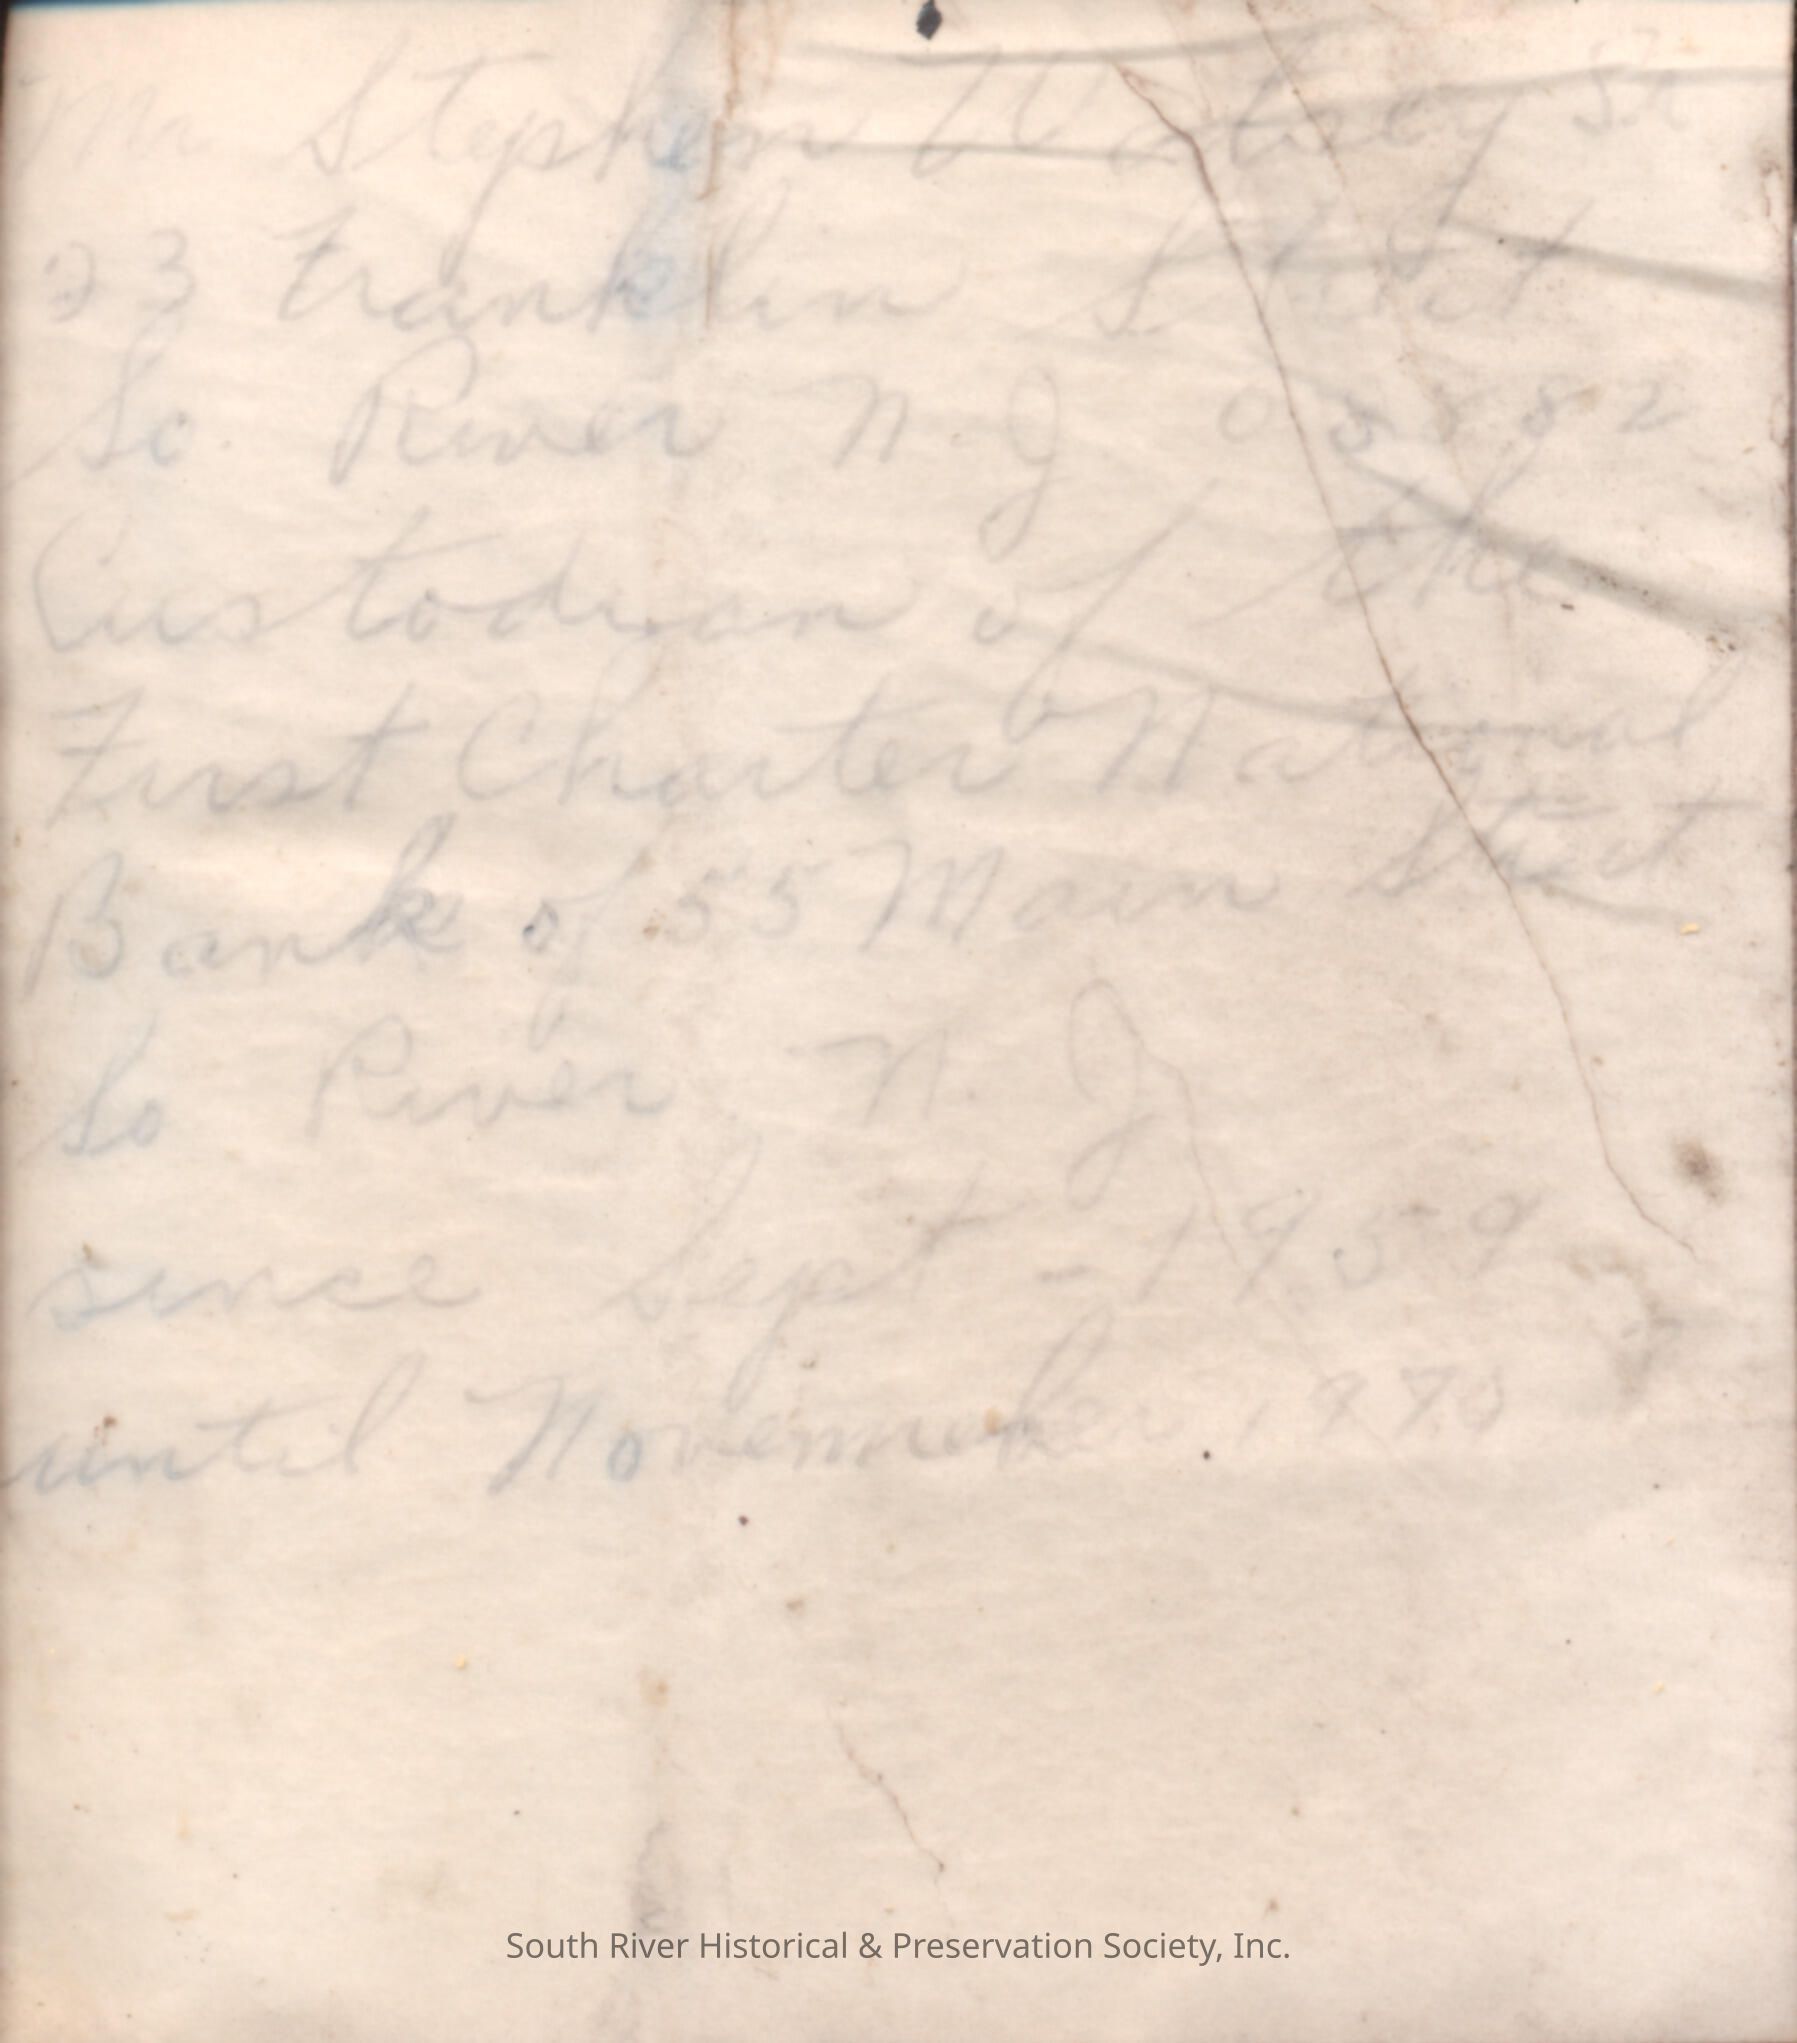 Mr Stephen Sr
23 Franklin Street
So. River N. J 08882
Custodian of the
First Charter National
Bank of 55 Main Street
So River N. J.
since Sept - 1959
until November 197
South River Historical & Preservation Society, Inc.